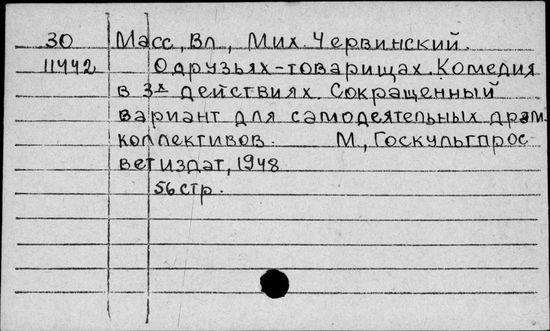 30 Масс, Вл., Мих. Червинский.
11442 О друзьях-товарищах. Комедия
в 3х действиях. Сокращенный
вариант для самодеятельных драм.
коллективов. М., Госкультпрос
ветиздат, 1948
56 стр.